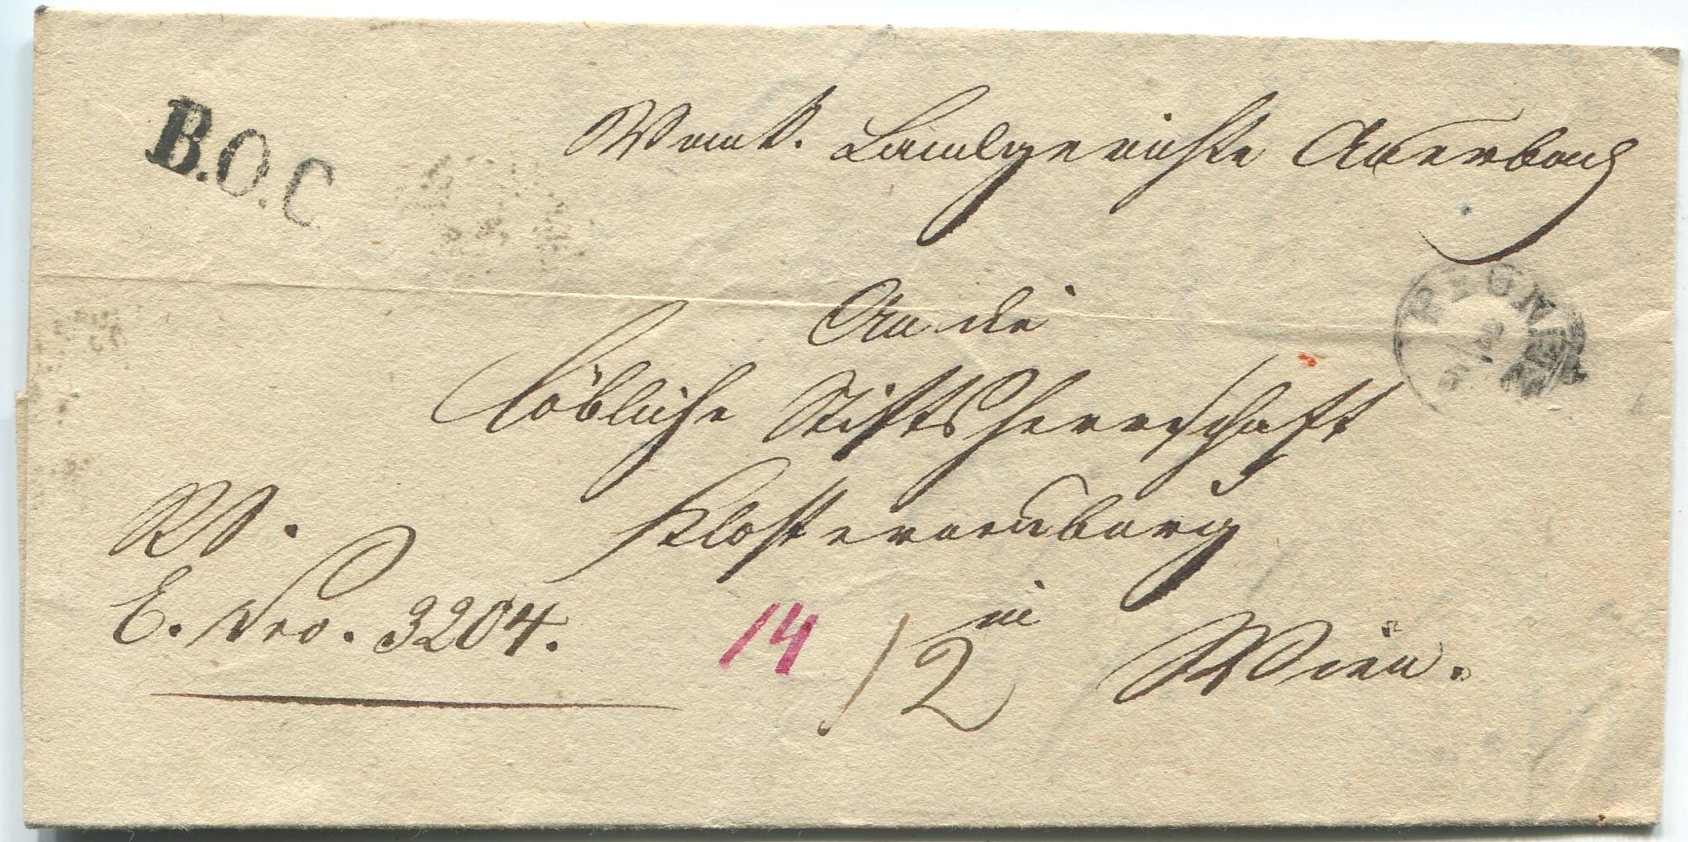 B.O.C
Vom k. Landgerichte Auerbach
An die
löbliche Stiftsherrschaft
Klosterneuburg
in
Wien.
RS.
E. Nro. 3204.
14
12
PEGNITZ